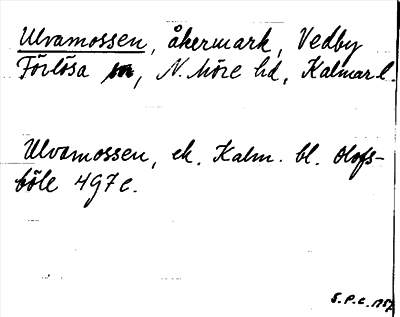 Ulvamossen, åkermark, Vedby
Förlösa sn, N. Möre hd, Kalmar l.
Ulvamossen, ek. Kalm. bl. Olofs-
böle 4 g 7 c.
S.P.C. 1957